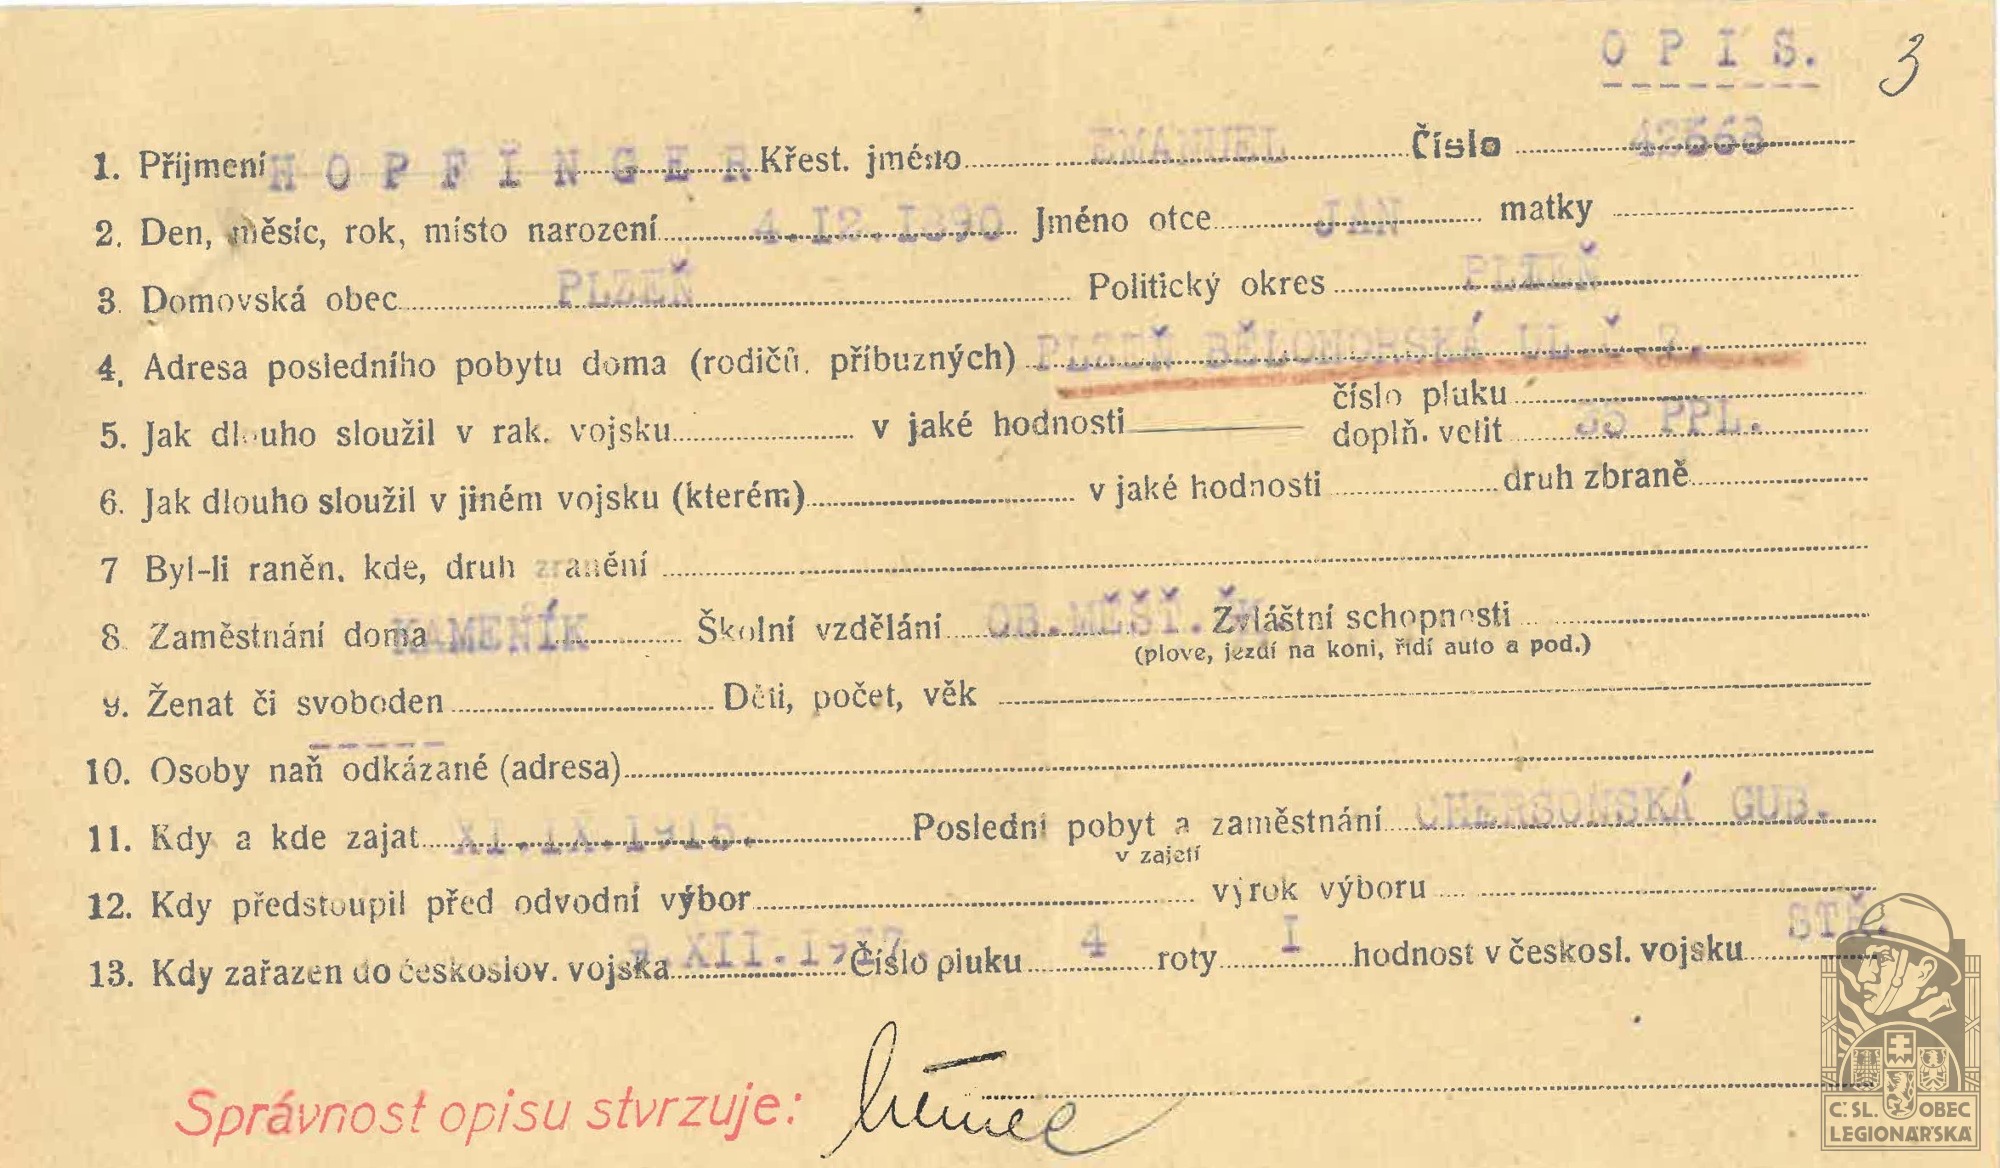 O P I S. 3
1. Příjmení H O P F I N G E R Křest. jméno EMANUEL Číslo 42563
2. Den, měsíc, rok, místo narození 4.I2.I890 Jméno otce JAN matky
3. Domovská obec PLZEŇ Politický okres PLZEŇ
4. Adresa posledního pobytu doma (rodičů, příbuzných) PLZEŇ BĚLOHORSKÁ UL.Č.
5. Jak dlouho sloužil v rak. vojsku v jaké hodnosti číslo pluku
doplň. velit 35 PPL.
6. Jak dlouho sloužil v jiném vojsku (kterém) v jaké hodnosti druh zbraně
7 Byl-li raněn, kde, druh zranění
8. Zaměstnání doma KAMENÍK Školní vzdělání OB.MĚŠŤ.ŠK. Zvláštní schopnosti
(plove, jezdí na koni, řídí auto a pod.)
9. Ženat či svoboden Děti, počet, věk
10. Osoby naň odkázané (adresa)
11. Kdy a kde zajat XI.IX.1915. Poslední pobyt a zaměstnání CHERSONSKÁ GUB.
v zajetí
12. Kdy předstoupil před odvodní výbor výrok výboru
13. Kdy zařazen do českoslov. vojska XII.19 7. Číslo pluku 4 roty I hodnost v českosl. vojsku STŘ.
Správnost opisu stvrzuje:
Č. SL. OBEC
LEGIONÁŘSKÁ